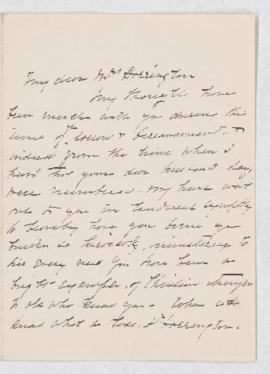 My dear Mrs Dorrington
My thoughts have
been much with you during this
time of sorrow & bereavement &
indeed from the time when I
heard that your dear husband's days
were numbered. My heart went
out to you in tenderest sympathy
to how you bore up
so , ministering to
his every need. You have been a
bright example, of Christian strength
to all who knew you. When we
knew what a loss. Dr Dorrington.